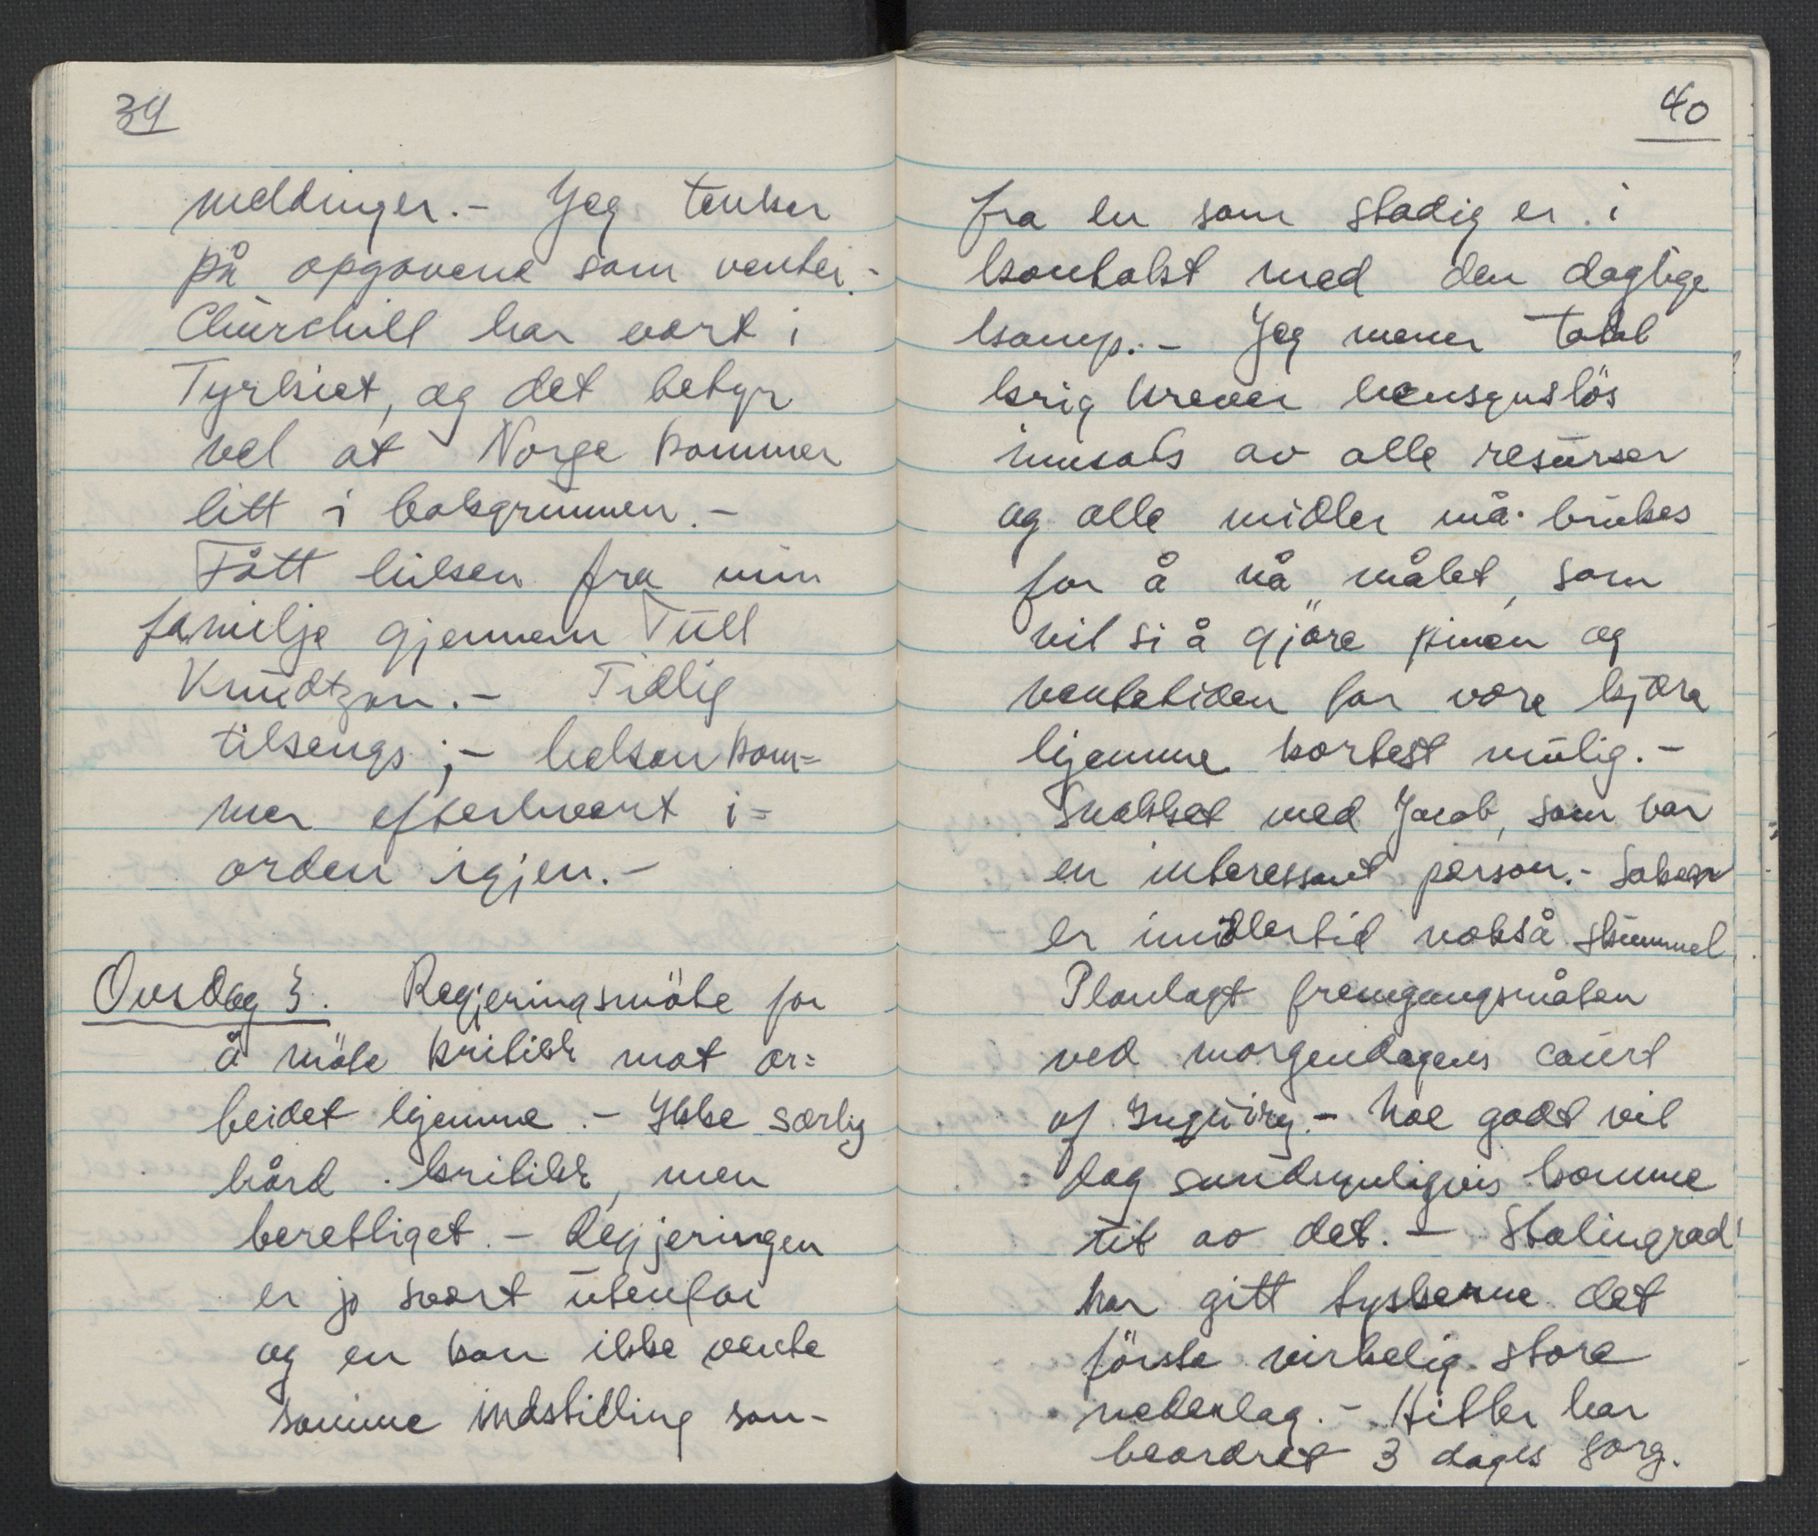 39
meldinger. - Jeg tenker
på opgavene som venter. -
Churchill har vært i
Tyrkiet, og det betyr
vel at Norge kommer
litt i bakgrunnen. -
Fått hilsen fra min
familje gjennem Tull
Knudtzon. - Tidlig
tilsengs; - helsen kom=
mer efterhvert i=
orden igjen. -
Onsdag 3. Regjeringsmöte for
å möte kritikk mot ar=
beidet hjemme. - Ikke særlig
hård kritikk, men
berettiget. - Regjeringen
er jo svært utenfor
og en kan ikke vente
samme indstilling som-
40
fra en som stadig er i
kontakt med den daglige
kamp. - Jeg mener total
krig krever hensynslös
innsats av alle resurser
og alle midler må brukes
for å nå målet, som
vil si å gjöre pinen og
ventetiden for våre kjære
hjemme kortest mulig. -
Snakket med Jacob, som var
en interessant person. - Saken
er imidlertid nokså skummel
Planlagt fremgangsmåten
ved morgendagens court
of Inquiry. - Noe godt vil
dog sandsynligvis komme
ut av det. - Stalingrad
har gitt tyskerne det
förste virkelig store
nederlag. - Hitler har
beordret 3 dages sorg.